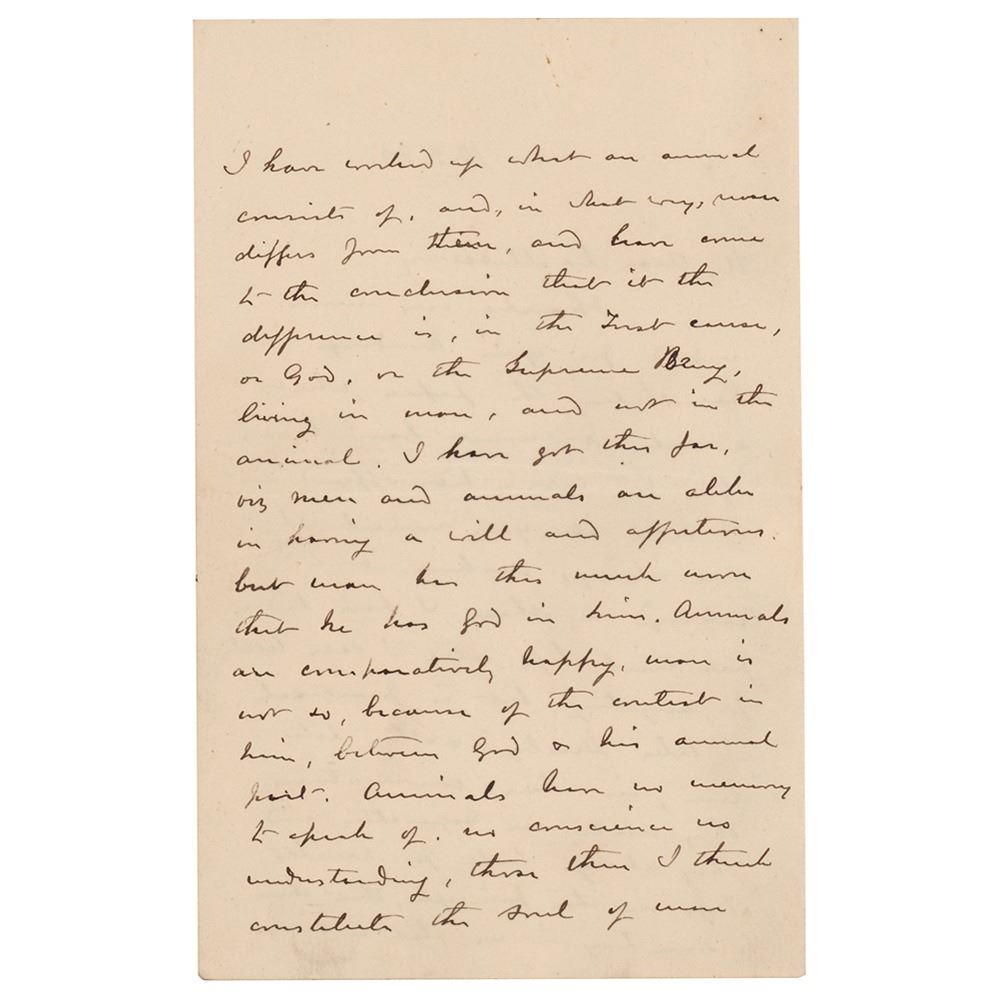 I have worked up what an animal
consists of, and, in what way, man
differs from them, and have come
to the conclusion that it the
difference is, in the First cause,
or God, or the Supreme Being,
living in man, and not in the
animal. I have got this far,
viz men and animals are alike
in having a will and affections.
but man has this much more
that he has God in him. Animals
are comparatively happy, man is
not so, because of the contest in
him, between God & his animal
part. Animals have no memory
to speak of. no conscience no
understanding, those then I think
constitute the soul of man